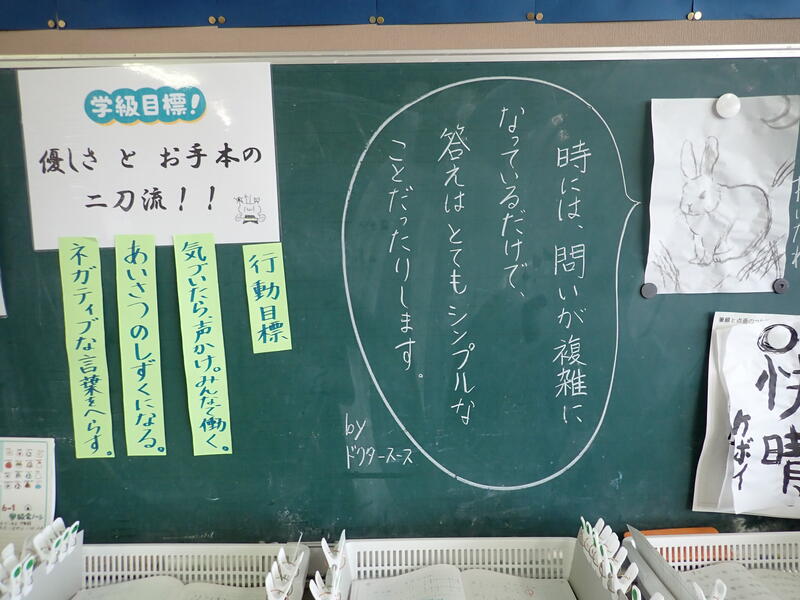 学級目標!
優しさ と お手本の
二刀流!!
行動目標
気づいたら、声かけ。みんなで働く。
あいさつのしずくになる。
ネガティブな言葉をへらす。
時には、問いが複雑に
なっているだけで、
答えはとてもシンプルな
ことだったりします。
by
ドクタースース
快晴
ケボイ
6-1